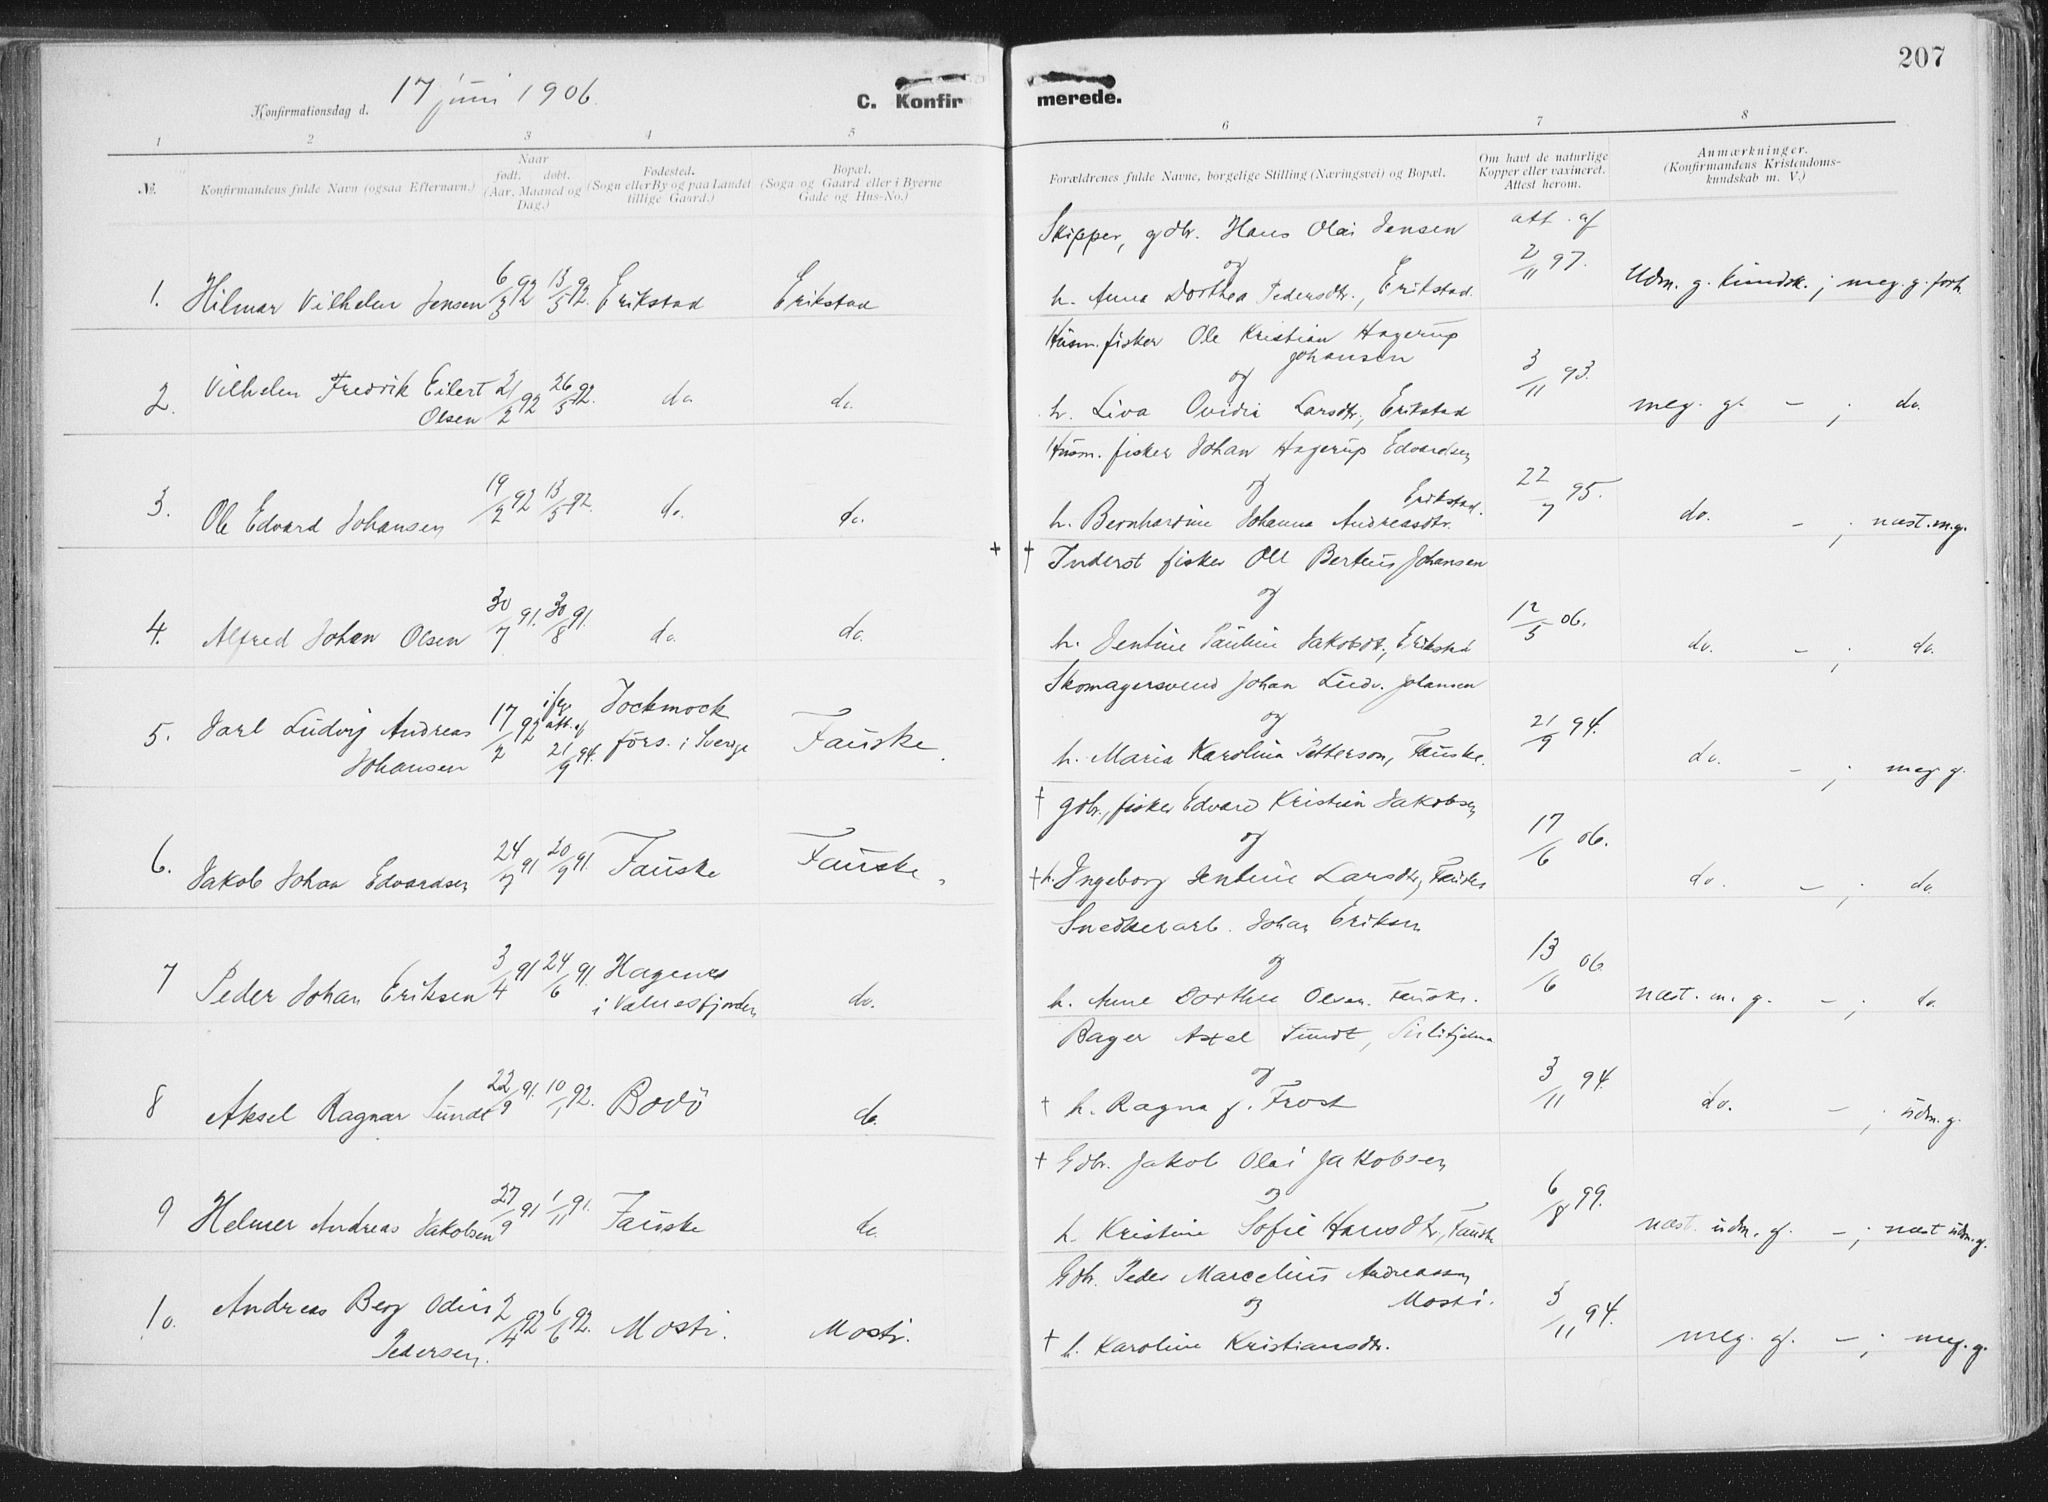 207
Konfirmationsdag d. 17 juni 1906.
C. Konfirmerede.
1 2 3 4 5 6 7 8
№.
Konfirmandens fulde Navn (ogsaa Efternavn.)
Naar født. døbt. (Aar, Maaned og Dag.)
Fødested. (Sogn eller By og paa Landet tillige Gaard.)
Bopæl. (Sogn og Gaard eller i Byerne Gade og Hus-No.)
Forældrenes fulde Navne, borgelige Stilling (Næringsvei) og Bopæl.
Om havt de naturlige Kopper eller vaxineret. Attest herom.
Anmærkninger. (Konfirmandens Kristendomskundskab m. V.)
1. Hilmar Vilhelm Jensen 6/3 92 13/5 92. Erikstad Erikstad
Skipper, gdbr. Hans Olai Jensen
og
h. Anna Dorthea Pedersdtr., Erikstad.
att. af 2/11 97.
Udm. g. kundsk.; meg. g. forh.
2. Vilhelm Fredrik Eilert Olsen 21/2 92 26/5 92. do do.
Husm. fisker Ole Kristian Hagerup Johansen
og
h. Liva Ovidia Larsdtr., Erikstad
3/11 93.
meg. g. – ; do.
3. Ole Edvard Johansen 19/2 92 13/5 92. do. do.
Husm. fisker Johan Hagerup Edvardsen
og Erikstad.
h. Bernhardine Johanna Andreasdtr.
22/7 95.
do. – ; næst. m. g.
4. Alfred Johan Olsen 30/7 91. 30/8 91. do. do.
+ † Inderst fisker Ole Berteus Johansen
og
h. Jentine Pauline Jakobsdtr., Erikstd
12/5 06.
do. – ; do.
5. Jarl Ludvig Andreas Johansen 17/2 92 ifg. att. af 21/9 94. Jockmock förs. i Sverige Fauske.
Skomagersvend Johan Ludv. Johansen
og
h. Maria Karolina Petterson, Fauske.
21/9 94.
do. – ; meg. g.
6. Jakob Johan Edvardsen 24/7 91 20/9 91. Fauske Fauske.
† gdbr., fisker Edvard Kristian Jakobsen
og
† h. Ingeborg Jentine Larsdtr., Fauske
17/6 06.
do. – ; do.
7 Peder Johan Eriksen 3/4 91 24/6 91. Hagenes i Valnesfjorden do.
Snedkerarb. Johan Eriksen
og
h. Anne Dorthea Olsen. Fauske.
13/6 06
næst. m. g. – ; do.
8 Aksel Ragnar Sundt 22/9 91. 10/1 92. Bodö do.
Bager Axel Sundt, Sulitjelma
og
† h. Ragna f. Frost
3/11 94.
do. – ; udm. g.
9 Helmer Andreas Jakobsen 27/9 91 1/11 91. Fauske do.
† Gdbr. Jakob Olai Jakobsen
og
h. Kristine Sofie Hansdtr., Fauske
6/8 99.
næst. udm. g. – ; næst udm. g.
10. Andreas Berg Odin Pedersen. 2/4 92 6/6 92. Mosti. Mosti.
Gdbr. Peder Marcelius Andreassen
og Mosti.
† h. Karoline Kristiansdtr.
3/11 94.
meg. g. – ; meg. g.